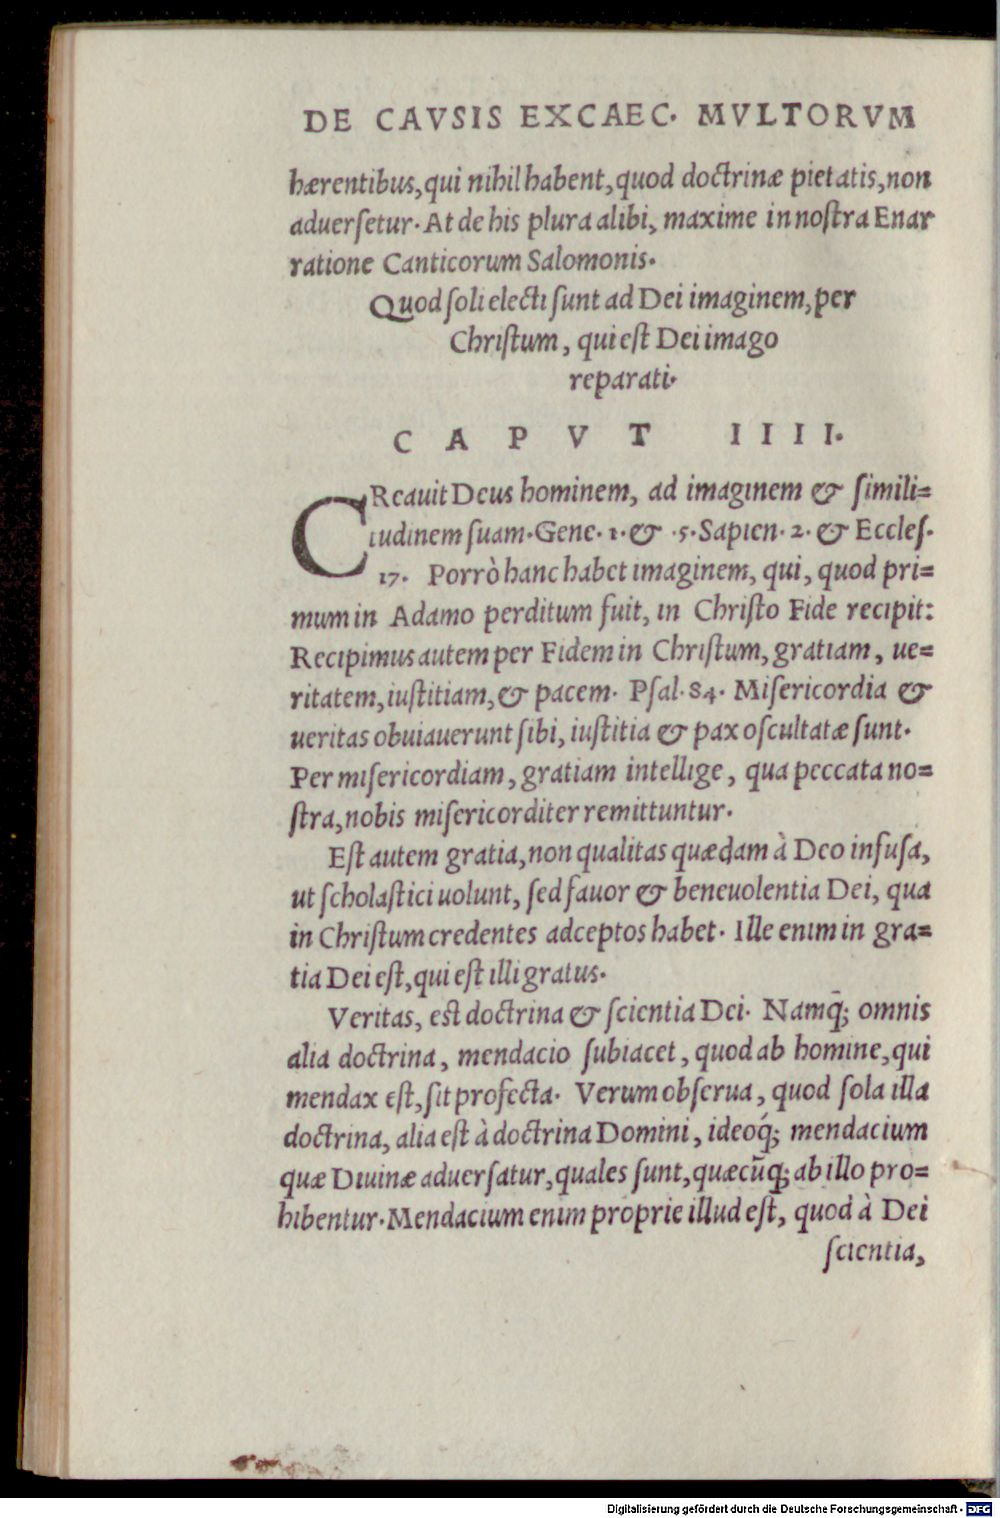 DE CAVSIS EXCAEC. MVLTORVM
hærentibus, qui nihil habent, quod doctrinæ pietatis, non
aduerſetur. At de his plura alibi, maxime in noſtra Enar
ratione Canticorum Salomonis.
Quod ſoli electi ſunt ad Dei imaginem, per
Chriſtum, qui eſt Dei imago
reparati.
CAPVT IIII.
CReauit Deus hominem, ad imaginem & ſimili=
tudinem ſuam. Gene. 1. & .5. Sapien. 2. & Eccleſ.
17. Porrò hanc habet imaginem, qui, quod pri=
mum in Adamo perditum fuit, in Chriſto Fide recipit:
Recipimus autem per Fidem in Chriſtum, gratiam, ue=
ritatem, iuſtitiam, & pacem. Pſal. 84. Miſericordia &
ueritas obuiauerunt ſibi, iuſtitia & pax oſcultatæ ſunt.
Per miſericordiam, gratiam intellige, qua peccata no=
ſtra, nobis miſericorditer remittuntur.
Eſt autem gratia, non qualitas quædam à Deo infuſa,
ut ſcholaſtici uolunt, ſed fauor & beneuolentia Dei, qua
in Chriſtum credentes adceptos habet. Ille enim in gra=
tia Dei eſt, qui eſt illi gratus.
Veritas, eſt doctrina & ſcientia Dei. Namq̃; omnis
alia doctrina, mendacio ſubiacet, quod ab homine, qui
mendax eſt, ſit profecta. Verum obſerua, quod ſola illa
doctrina, alia eſt à doctrina Domini, ideoq́; mendacium
quæ Diuinæ aduerſatur, quales ſunt, quæcũq; ab illo pro=
hibentur. Mendacium enim proprie illud eſt, quod à Dei
ſcientia,
Digitalisierung gefördert durch die Deutsche Forschungsgemeinschaft - DFG